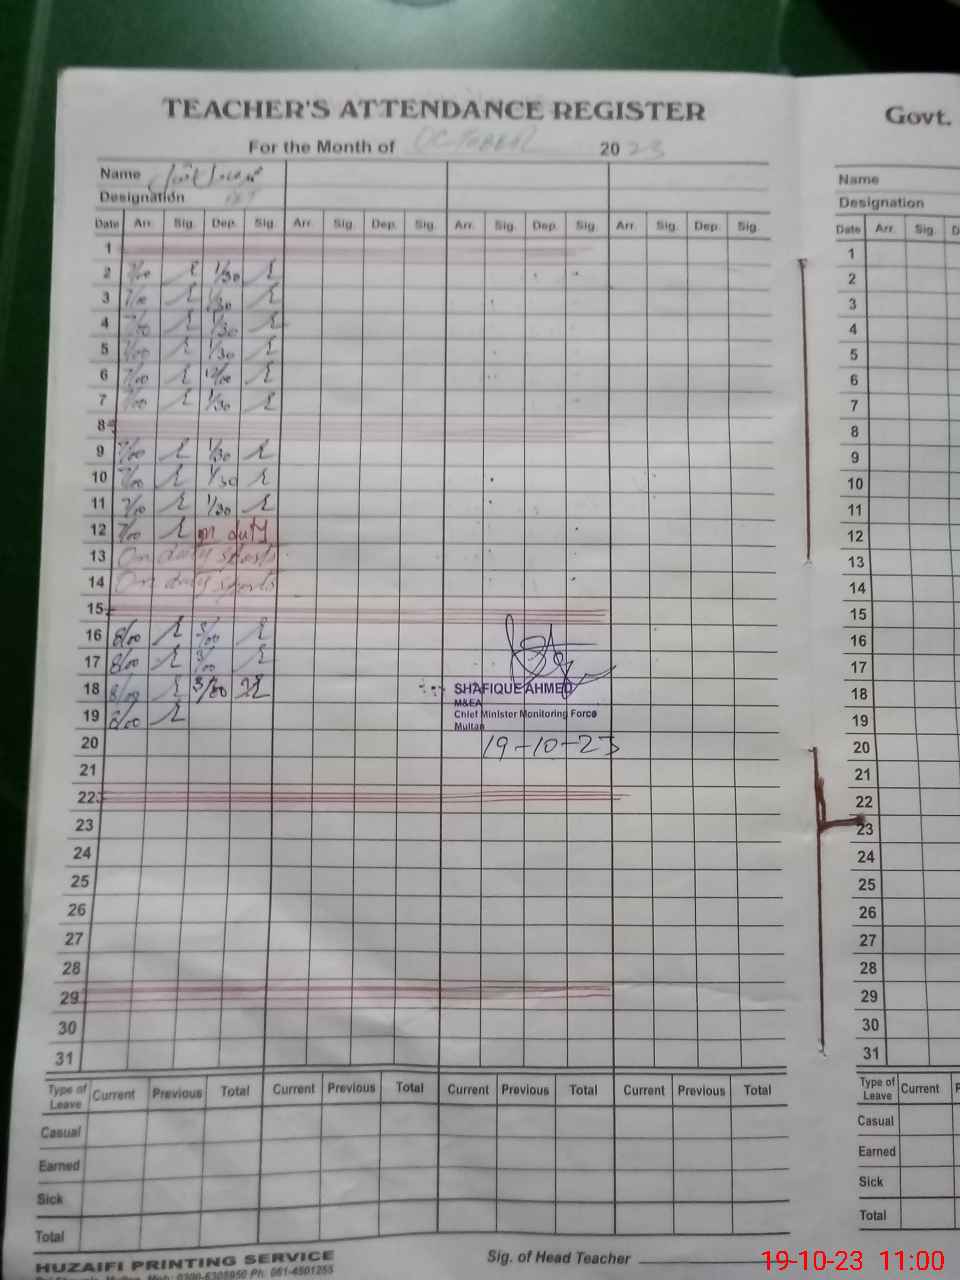 TEACHER'S ATTENDANCE REGISTER
For the Month of OCTOBER 2023
Name
Designation
Date Arr. Sig. Dep. Sig. Arr. Sig. Dep. Sig. Arr. Sig. Dep. Sig. Arr. Sig. Dep. Sig.
1
2 7/00 1/30
3 7/00 1/30
4 7/00 1/30
5 7/00 1/30
6 7/00 12/00
7 7/00 1/30
8
9 7/00 1/30
10 7/00 1/30
11 7/00 1/30
12 7/00 on duty
13 On duty sports
14 On duty sports
15
16 8/00 3/00
17 8/00 3/00
18 8/00 3/00
19 8/00
SHAFIQUE AHMED
M&EA
Chief Minister Monitoring Force
Multan
19-10-23
20
21
22
23
24
25
26
27
28
29
30
31
Type of Leave Current Previous Total Current Previous Total Current Previous Total Current Previous Total
Casual
Earned
Sick
Total
HUZAIFI PRINTING SERVICE
Sig. of Head Teacher
Govt.
Name
Designation
Date Arr. Sig.
1
2
3
4
5
6
7
8
9
10
11
12
13
14
15
16
17
18
19
20
21
22
23
24
25
26
27
28
29
30
31
Type of Leave Current
Casual
Earned
Sick
Total
19-10-23 11:00